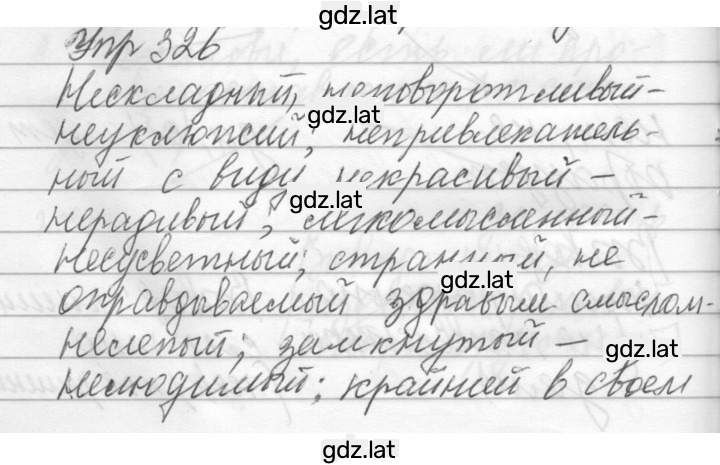 gdz.lat
Упр 326
Нескладный, неповоротливый-
gdz.lat
неуклюжий; непривлекатель-
ный с виду некрасивый -
gdz.lat
нерадивый; легкомысленный-
несусветный; странный, не
gdz.lat
оправдываемый здравым смыслом-
нелепый; замкнутый -
gdz.lat
нелюдимый; крайней в своем
gdz.lat